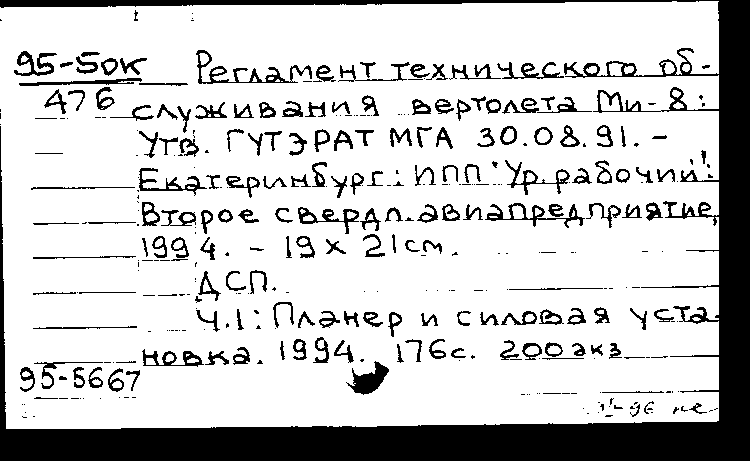 95-5ок Регламент технического об-
476 служивания вертолета Ми-8:
Утв. ГУТЭРАТ МГА 30.08.91. –
Екатеринбург: ИПП "Ур. рабочий":
Второе свердл. авиапредприятие,
1994. – 19 х 21 см.
ДСП.
Ч.1: Планер и силовая уста-
новка. 1994. 176с. 200 экз
95-5667
96